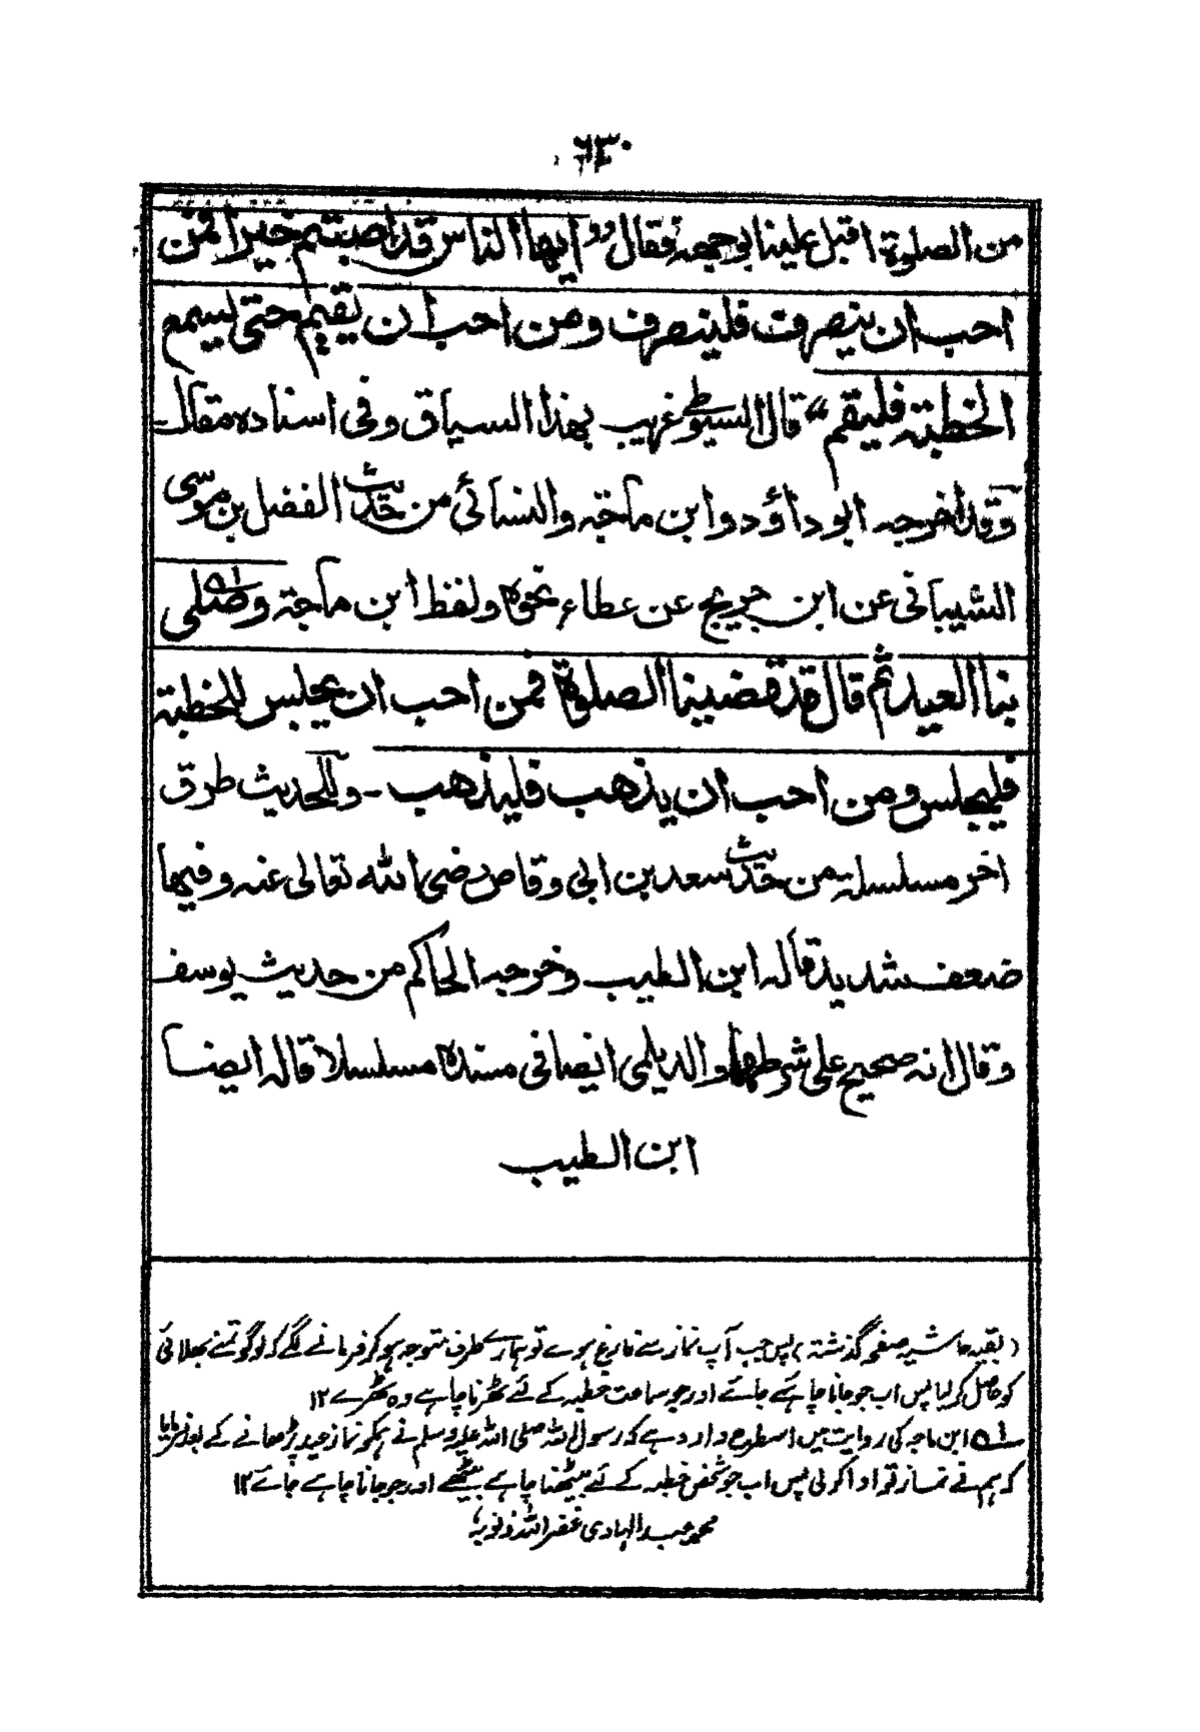 ٦٣٠
من الصلوٰة اقبل علینا بوجهه فقال “ایها الناس قد اصبتم خیرا فمن
احب ان ینصرف فلینصرف ومن احب ان یقیم حتی یسمع
الخطبة فلیقم“ قال السیوطی غریب بهذا السیاق وفی اسناده مقال
وقد اخرجه ابو داؤد وابن ماجة والنسائی من حدیث الفضل بن موسی
الشیبانی عن ابن جریج عن عطاء نحوه ولفظ ابن ماجة وصلی
بنا العید ثم قال قد قضینا الصلوٰة فمن احب ان یجلس للخطبة
فلیجلس ومن احب ان یذهب فلیذهب - وللحدیث طرق
اخر مسلسلة من حدیث سعد بن ابی وقاص رضی الله تعالی عنه وفیها
ضعف شدید قاله ابن الطیب وخرجه الحاکم من حدیث یوسف
وقال انه صحیح علی شرطهما والدیلمی ایضا فی مسنده مسلسلا قاله ایضا
ابن الطیب
(بقیه حاشیه صفحه گذشته) پس جب آپ نماز سے فارغ ہوے تو ہمارے طرف متوجه ہوکر فرمانے لگے که لوگو تمنے بھلائی
کو حاصل کرلیا پس اب جو جانا چاہے جائے اور جو سماعت خطبه کے لئے ٹھرنا چاہے وه ٹھرے ۱۲
۱ه ابن ماجه کی روایت میں اسطرح وارد ہے که رسول الله صلی الله علیه وسلم نے ہمکو نماز عید پڑھانے کے بعد فرمایا
که ہم نے نماز تو ادا کرلی پس اب جو شخص خطبه کے لئے بیٹھنا چاہے بیٹھے اور جو جانا چاہے جائے ۱۲
محمد عبد الهادی غفر الله ذنوبه